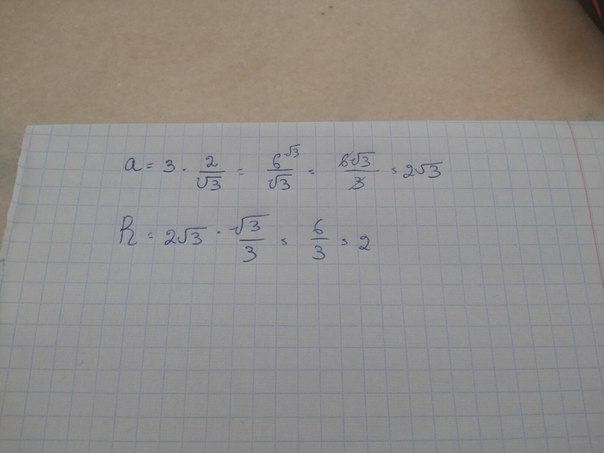 a = 3 · 2/√3 = 6^√3/√3 = 6√3/3 = 2√3
R = 2√3 · √3/3 = 6/3 = 2